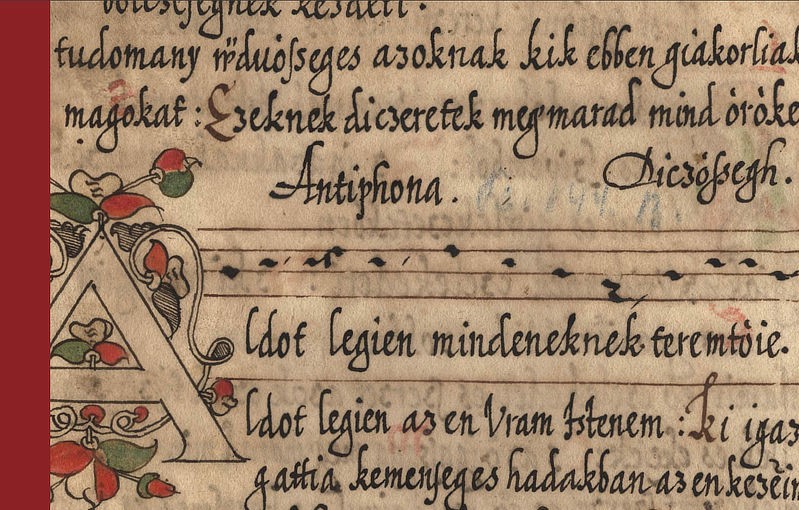 bölcseſegnek kezdeti .
tudomany w̋duòſseges azoknak kik ebben giakorliak
magokat : Ezeknek diczeretek megmarad mind òròke
Antiphona . Diczòßegh .
Aldot legien mindeneknek teremtòie .
Aldot legien az en Vram Istenem : Ki igaz
gattia kemenseges hadakban az en kezeim